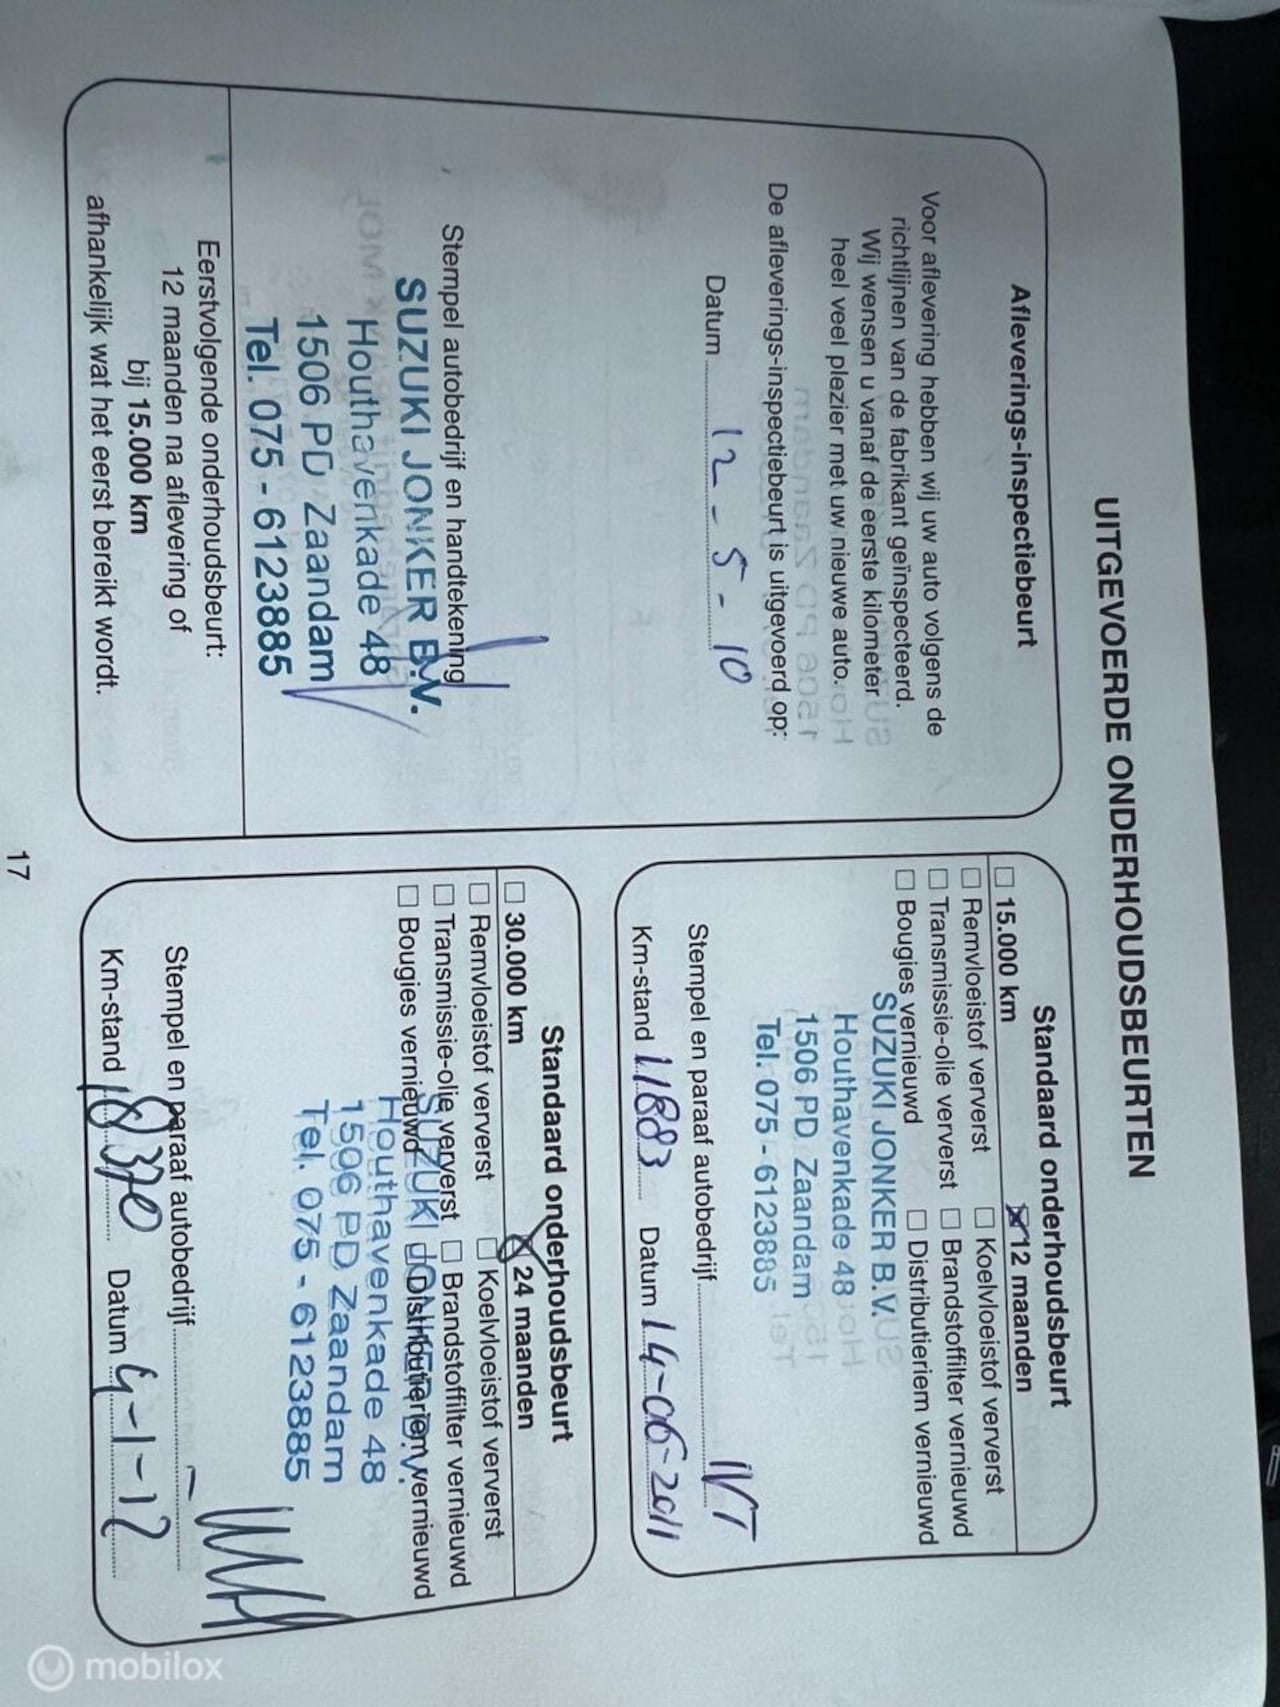 UITGEVOERDE ONDERHOUDSBEURTEN
Afleverings-inspectiebeurt
Voor aflevering hebben wij uw auto volgens de
richtlijnen van de fabrikant geïnspecteerd.
Wij wensen u vanaf de eerste kilometer
heel veel plezier met uw nieuwe auto.
De afleverings-inspectiebeurt is uitgevoerd op:
Datum 12-5-10
Stempel autobedrijf en handtekening
SUZUKI JONKER B.V.
Houthavenkade 48
1506 PD Zaandam
Tel. 075 - 6123885
Eerstvolgende onderhoudsbeurt:
12 maanden na aflevering of
bij 15.000 km
afhankelijk wat het eerst bereikt wordt.
Standaard onderhoudsbeurt
☐ 15.000 km ☒ 12 maanden
☐ Remvloeistof ververst ☐ Koelvloeistof ververst
☐ Transmissie-olie ververst ☐ Brandstoffilter vernieuwd
☐ Bougies vernieuwd ☐ Distributieriem vernieuwd
SUZUKI JONKER B.V.
Houthavenkade 48
1506 PD Zaandam
Tel. 075 - 6123885
Stempel en paraaf autobedrijf
Km-stand 11883 Datum 14-06-2011
Standaard onderhoudsbeurt
☐ 30.000 km ☒ 24 maanden
☐ Remvloeistof ververst ☐ Koelvloeistof ververst
☐ Transmissie-olie ververst ☐ Brandstoffilter vernieuwd
☐ Bougies vernieuwd ☐ Distributieriem vernieuwd
SUZUKI JONKER B.V.
Houthavenkade 48
1506 PD Zaandam
Tel. 075 - 6123885
Stempel en paraaf autobedrijf
Km-stand 18370 Datum 4-1-12
17
mobilox